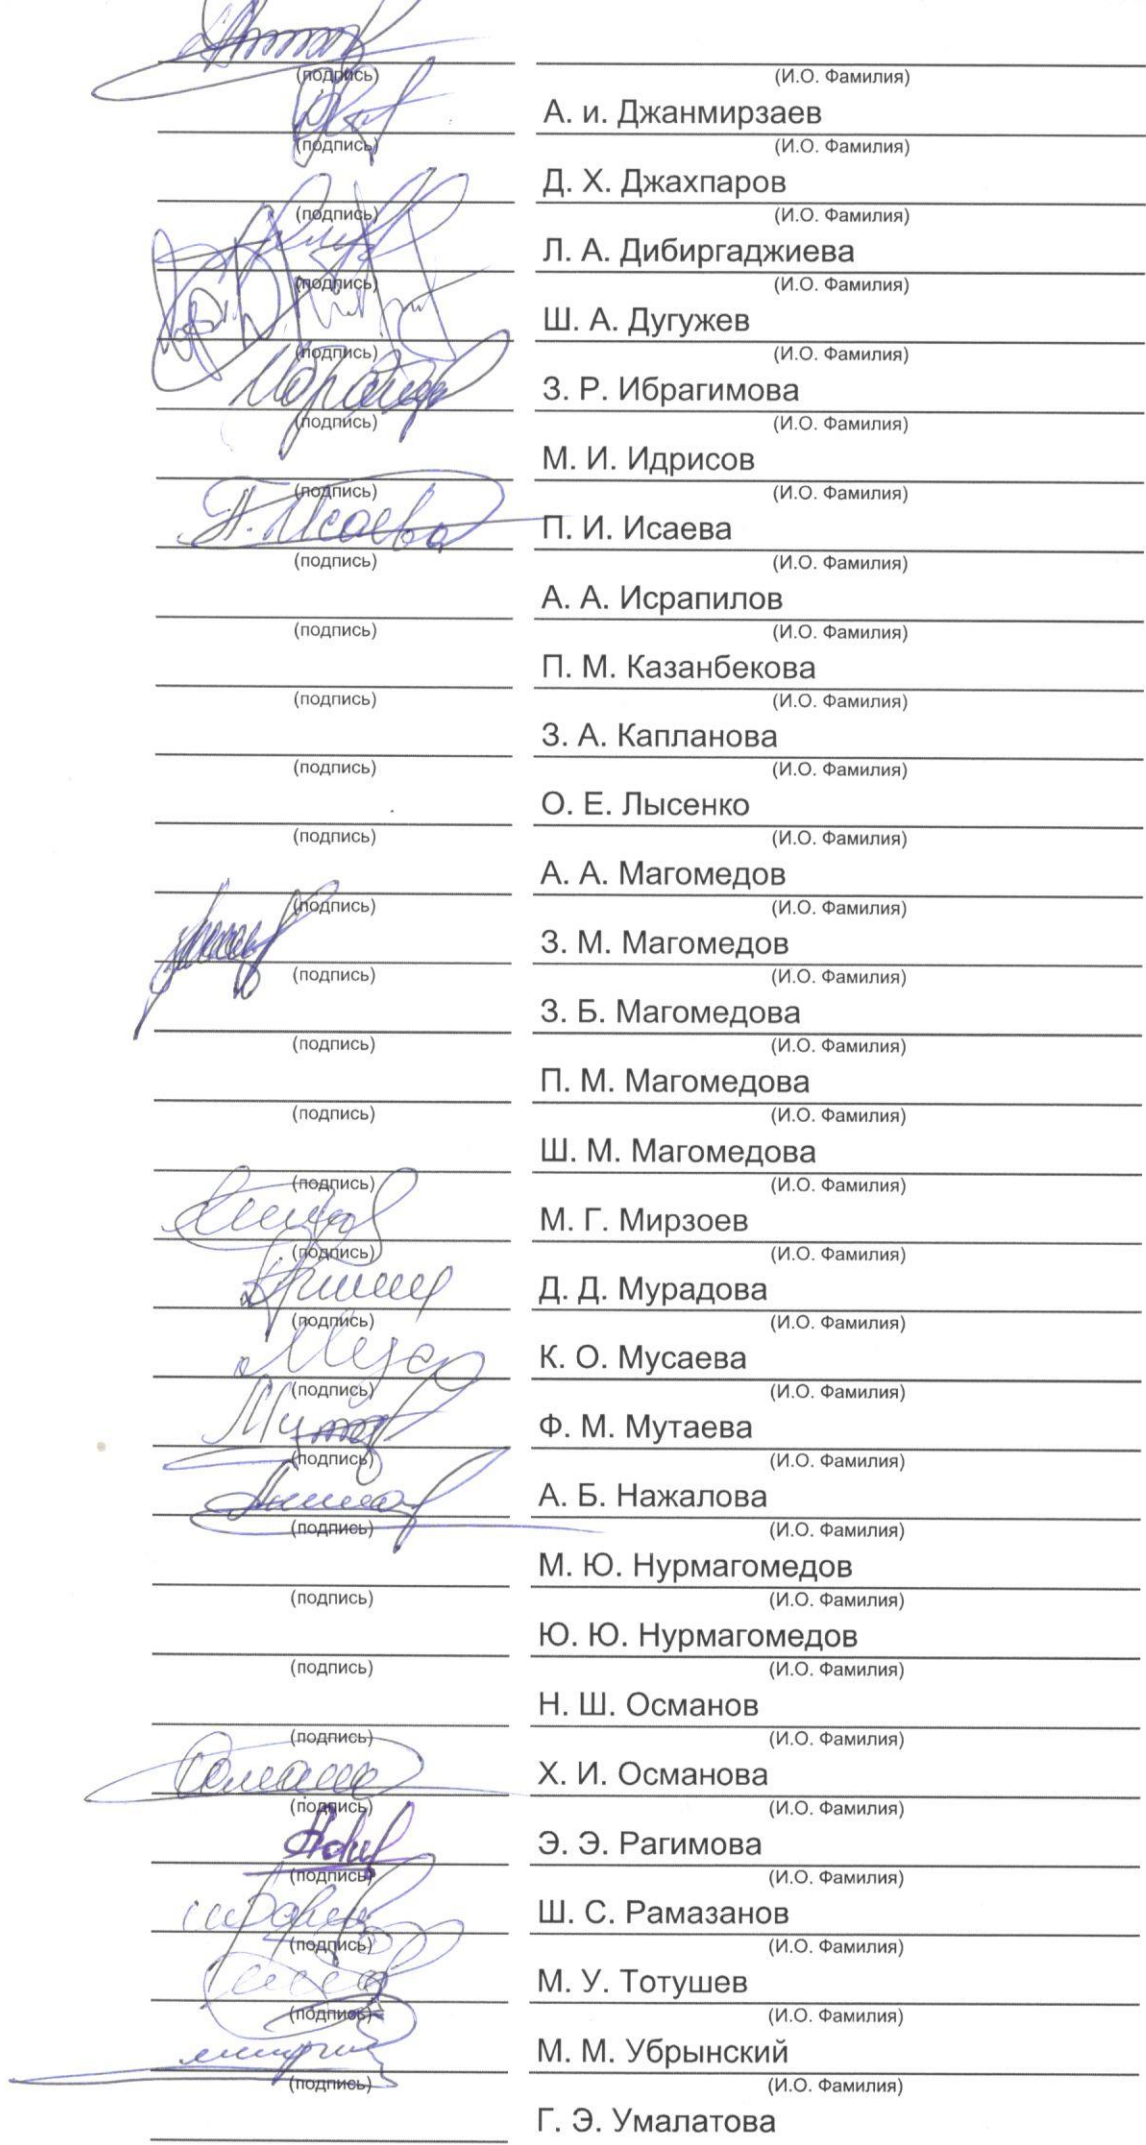 (подпись) (И.О. Фамилия)
А. и. Джанмирзаев
(подпись) (И.О. Фамилия)
Д. Х. Джахпаров
(подпись) (И.О. Фамилия)
Л. А. Дибиргаджиева
(подпись) (И.О. Фамилия)
Ш. А. Дугужев
(подпись) (И.О. Фамилия)
З. Р. Ибрагимова
(подпись) (И.О. Фамилия)
М. И. Идрисов
(подпись) (И.О. Фамилия)
П. Исаева П. И. Исаева
(подпись) (И.О. Фамилия)
А. А. Исрапилов
(подпись) (И.О. Фамилия)
П. М. Казанбекова
(подпись) (И.О. Фамилия)
З. А. Капланова
(подпись) (И.О. Фамилия)
О. Е. Лысенко
(подпись) (И.О. Фамилия)
А. А. Магомедов
(подпись) (И.О. Фамилия)
З. М. Магомедов
(подпись) (И.О. Фамилия)
З. Б. Магомедова
(подпись) (И.О. Фамилия)
П. М. Магомедова
(подпись) (И.О. Фамилия)
Ш. М. Магомедова
(подпись) (И.О. Фамилия)
М. Г. Мирзоев
(подпись) (И.О. Фамилия)
Д. Д. Мурадова
(подпись) (И.О. Фамилия)
К. О. Мусаева
(подпись) (И.О. Фамилия)
Ф. М. Мутаева
(подпись) (И.О. Фамилия)
А. Б. Нажалова
(подпись) (И.О. Фамилия)
М. Ю. Нурмагомедов
(подпись) (И.О. Фамилия)
Ю. Ю. Нурмагомедов
(подпись) (И.О. Фамилия)
Н. Ш. Османов
(подпись) (И.О. Фамилия)
Х. И. Османова
(подпись) (И.О. Фамилия)
Э. Э. Рагимова
(подпись) (И.О. Фамилия)
Ш. С. Рамазанов
(подпись) (И.О. Фамилия)
М. У. Тотушев
(подпись) (И.О. Фамилия)
М. М. Убрынский
(подпись) (И.О. Фамилия)
Г. Э. Умалатова